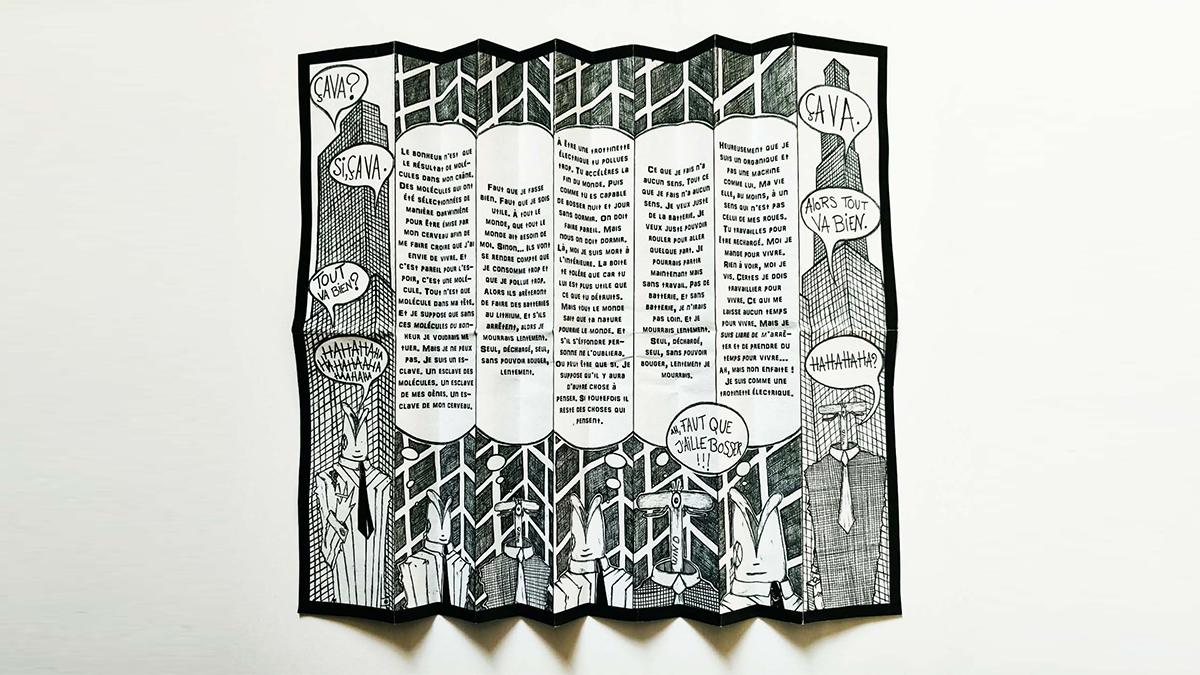 ÇAVA?
SI, ÇAVA.
TOUT
VA BIEN?
HAHAHAHA
HAHAHAHA
HAHAHAHA
LE BONHEUR N'EST QUE
LE RÉSULTAT DE MOLÉ-
CULES DANS MON CRÂNE.
DES MOLÉCULES QUI ONT
ÉTÉ SÉLECTIONNÉES DE
MANIÈRE DARWINIÈNE
POUR ÊTRE ÉMISE PAR
MON CERVEAU AFIN DE
ME FAIRE CROIRE QUE J'AI
ENVIE DE VIVRE. ET
C'EST PAREIL POUR L'ES-
POIR, C'EST UNE MOLÉ-
CULE. TOUT N'EST QUE
MOLÉCULE DANS MA TÊTE.
ET JE SUPPOSE QUE SANS
CES MOLÉCULES DU BON-
HEUR JE VOUDRAIS ME
TUER. MAIS JE NE PEUX
PAS. JE SUIS UN ES-
CLAVE. UN ESCLAVE DES
MOLÉCULES. UN ESCLAVE
DE MES GÈNES. UN ES-
CLAVE DE MON CERVEAU.
FAUT QUE JE FASSE
BIEN. FAUT QUE JE SOIS
UTILE. À TOUT LE
MONDE, QUE TOUT LE
MONDE AIT BESOIN DE
MOI. SINON... ILS VONT
SE RENDRE COMPTE QUE
JE CONSOMME TROP ET
QUE JE POLLUE TROP.
ALORS ILS ARÊTERONT
DE FAIRE DES BATTERIES
AU LITHIUM. ET S'ILS
ARRÊTENT, ALORS JE
MOURRAIS LENTEMENT.
SEUL, DÉCHARGÉ, SEUL,
SANS POUVOIR BOUGER,
LENTEMENT.
À ÊTRE UNE TROTTINETTE
ÉLECTRIQUE TU POLLUES
TROP. TU ACCÉLÈRES LA
FIN DU MONDE. PUIS
COMME TU ES CAPABLE
DE BOSSER NUIT ET JOUR
SANS DORMIR. ON DOIT
FAIRE PAREIL. MAIS
NOUS ON DOIT DORMIR.
LÀ, MOI JE SUIS MORT À
L'INTÉRIEURE. LA BOITE
TE TOLÈRE QUE CAR TU
LUI EST PLUS UTILE QUE
CE QUE TU DÉTRUITS.
MAIS TOUT LE MONDE
SAIT QUE TA NATURE
POURRIE LE MONDE. ET
S'IL S'EFFONDRE PER-
SONNE NE L'OUBLIERA.
OU PEUT ÊTRE QUE SI. JE
SUPPOSE QU'IL Y AURA
D'AUTRE CHOSE À
PENSER. SI TOUTEFOIS IL
RESTE DES CHOSES QUI
PENSENT.
CE QUE JE FAIS N'A
AUCUN SENS. TOUT CE
QUE JE FAIS N'A AUCUN
SENS. JE VEUX JUSTE
DE LA BATTERIE. JE
VEUX JUSTE POUVOIR
ROULER POUR ALLER
QUELQUE PART. JE
POURRAIS PARTIR
MAINTENANT MAIS
SANS TRAVAIL. PAS DE
BATTERIE. ET SANS
BATTERIE, JE N'IRAIS
PAS LOIN. ET JE
MOURRAIS LENTEMENT.
SEUL, DÉCHARGÉ,
SEUL, SANS POUVOIR
BOUGER, LENTEMENT JE
MOURRAIS.
AH, FAUT QUE
J'AILLE BOSSER
!!!
WIND
HEUREUSEMENT QUE JE
SUIS UN ORGANIQUE ET
PAS UNE MACHINE
COMME LUI. MA VIE
ELLE, AU MOINS, À UN
SENS QUI N'EST PAS
CELUI DE MES ROUES.
TU TRAVAILLES POUR
ÊTRE RECHARGÉ. MOI JE
MANGE POUR VIVRE.
RIEN À VOIR, MOI JE
VIS. CERTES JE DOIS
TRAVAILLIER POUR
VIVRE. CE QUI ME
LAISSE AUCUN TEMPS
POUR VIVRE. MAIS JE
SUIS LIBRE DE M'ARRÊ-
TER ET DE PRENDRE DU
TEMPS POUR VIVRE...
AH, MAIS NON ENFAITE !
JE SUIS COMME UNE
TROTINETTE ÉLECTRIQUE.
ÇAVA.
ALORS TOUT
VA BIEN.
HAHAHAHA?